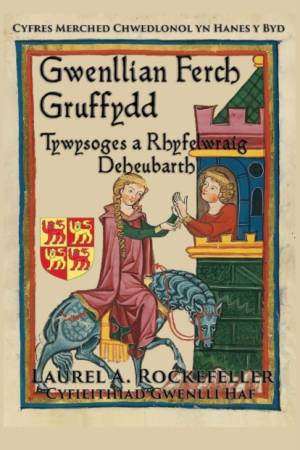 Cyfres Merched Chwedlonol yn Hanes y Byd
Gwenllian Ferch
Gruffydd
Tywysoges a Rhyfelwraig
Deheubarth
Laurel A. Rockefeller
Cyfieithiad Gwenlli Haf